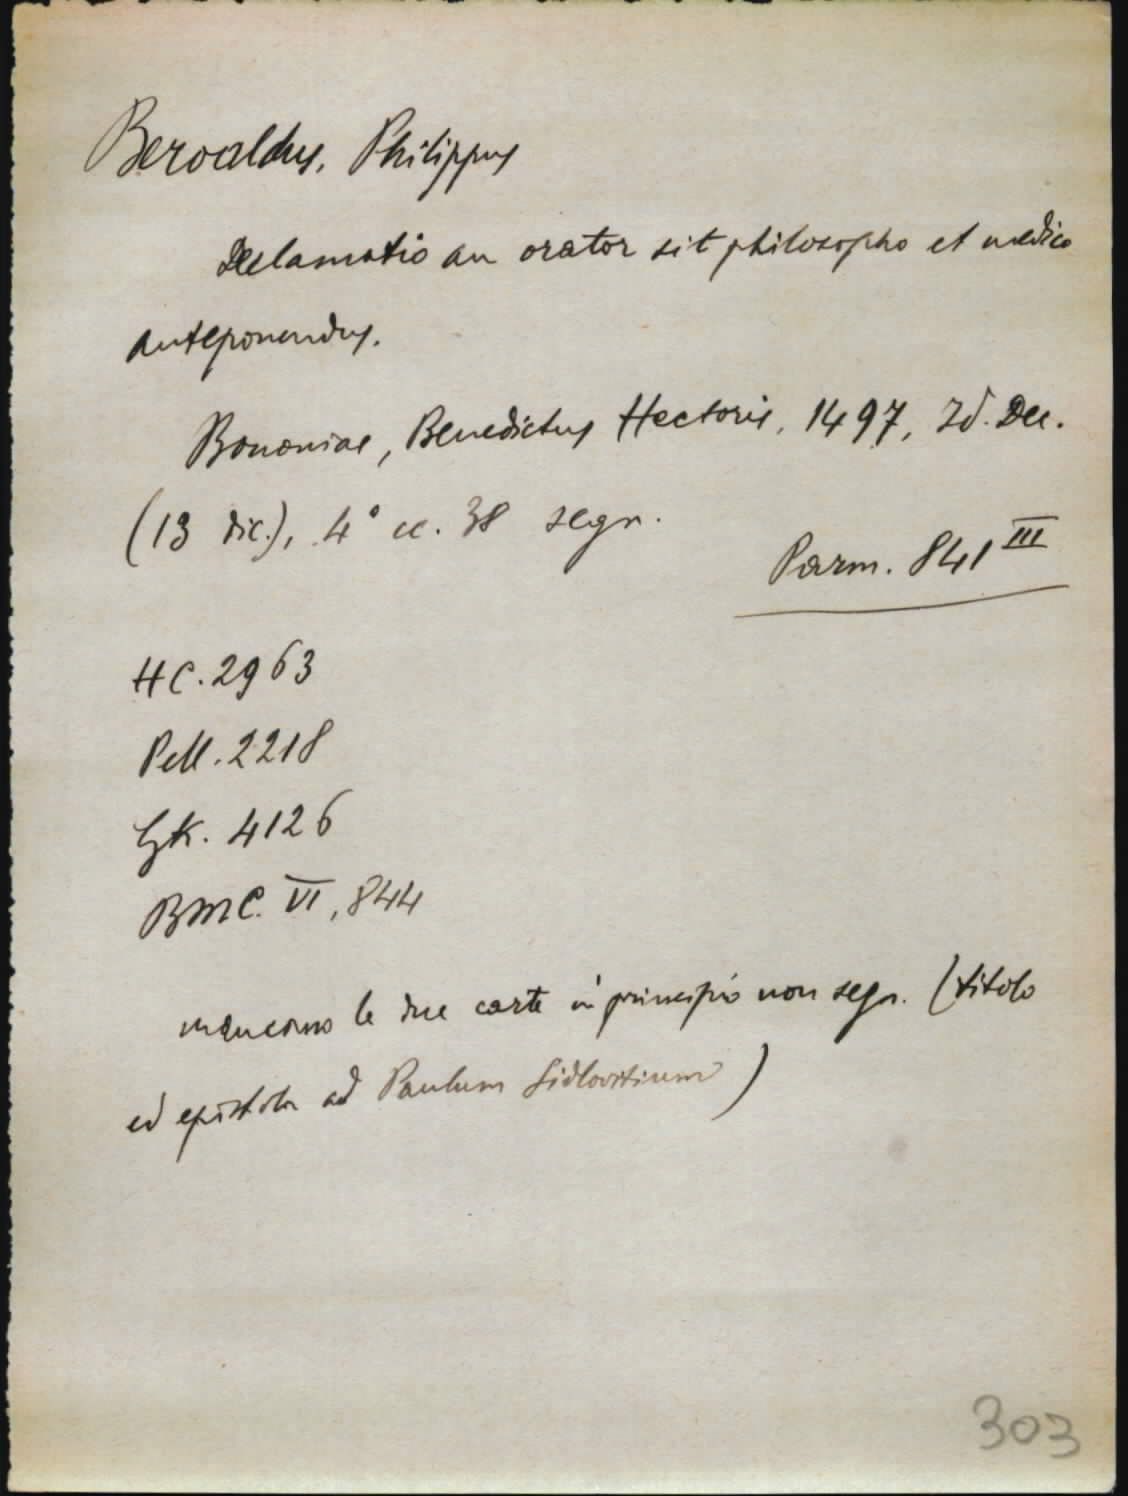 Beroaldus, Philippus
Declamatio an orator sit philosopho et medico
anteponendus.
Bononiae, Benedictus Hectoris, 1497, Id. Dec.
(13 dic.), 4° cc. 38 segn.
Parm. 841 III
HC. 2963
Pell. 2218
GK. 4126
BMC. VI, 844
mancano le due carte in principio non segn. (titolo
ed epistola ad Paulum Sidlovitium)
303